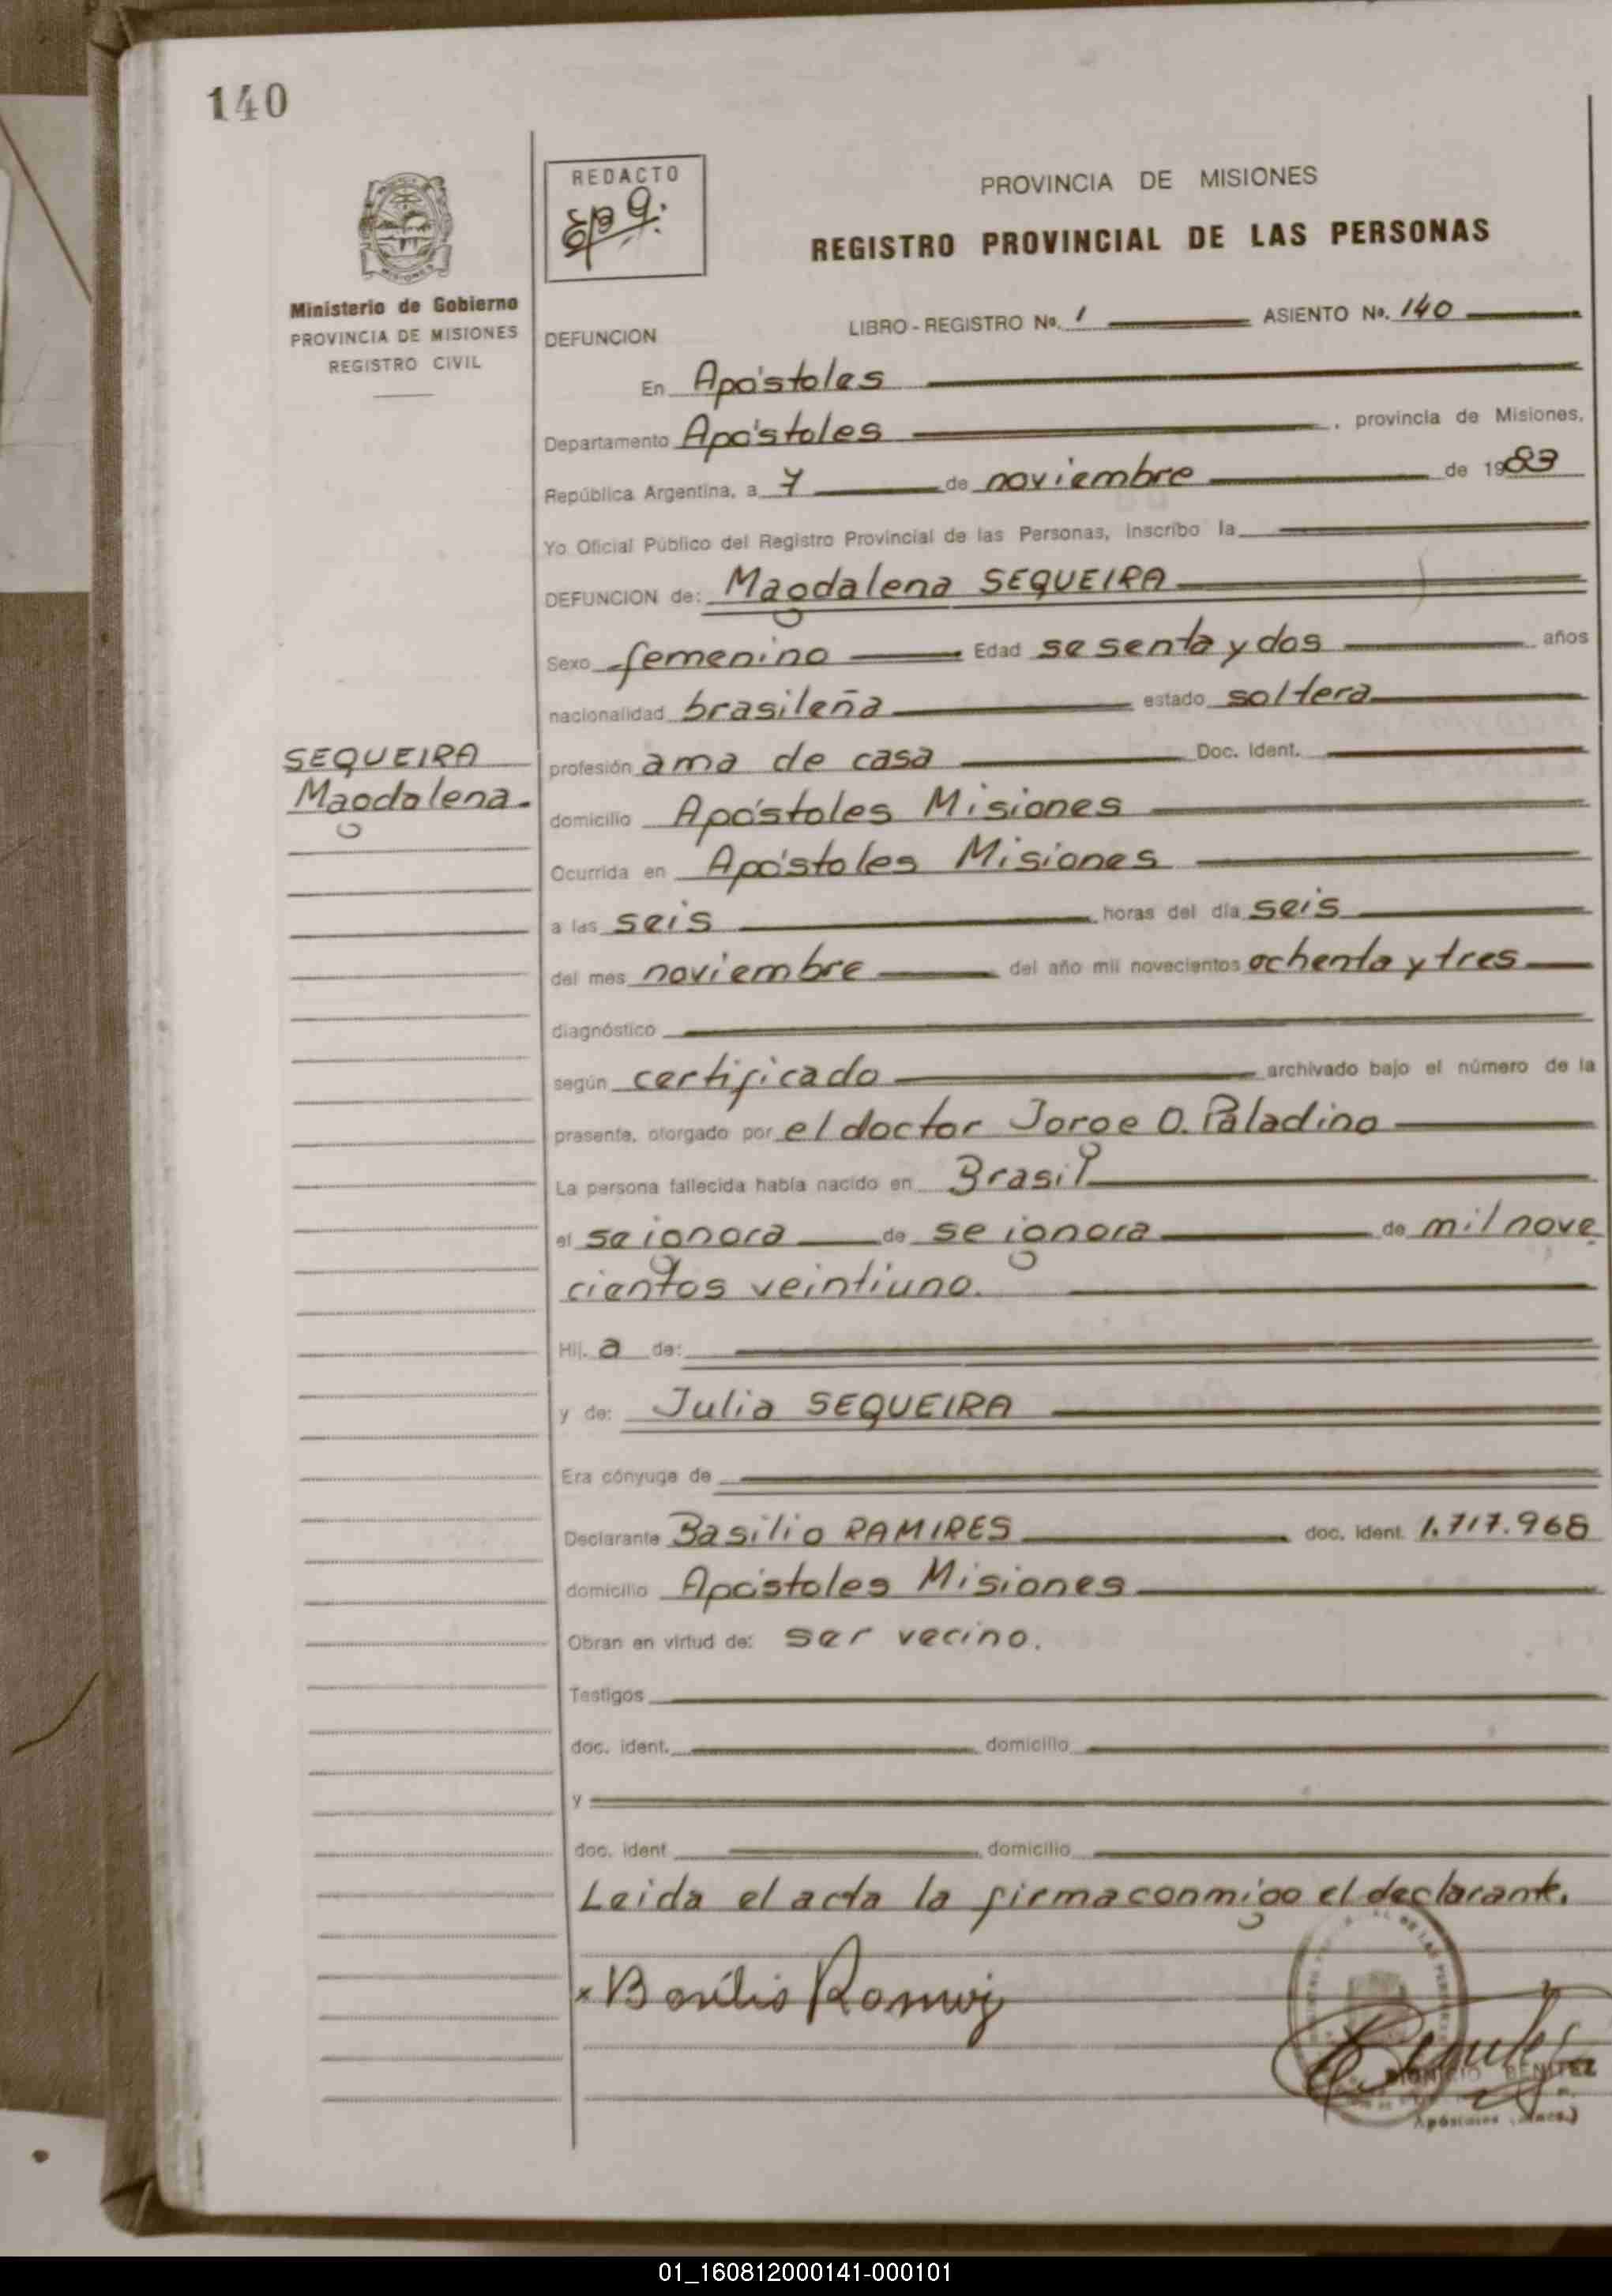 140
REDACTO
Ministerio de Gobierno
PROVINCIA DE MISIONES
REGISTRO CIVIL
PROVINCIA DE MISIONES
REGISTRO PROVINCIAL DE LAS PERSONAS
DEFUNCION LIBRO - REGISTRO No. 1 ASIENTO No. 140
En Apóstoles
Departamento Apóstoles, provincia de Misiones,
República Argentina, a 7 de noviembre de 1983
Yo Oficial Público del Registro Provincial de las Personas, inscribo la
DEFUNCION de: Magdalena SEQUEIRA
Sexo femenino Edad sesenta y dos años
nacionalidad brasileña estado soltera
SEQUEIRA
Magdalena.
profesión ama de casa Doc. Ident.
domicilio Apóstoles Misiones
Ocurrida en Apóstoles Misiones
a las seis horas del día seis
del mes noviembre del año mil novecientos ochenta y tres
diagnóstico
según certificado archivado bajo el número de la
presente, otorgado por el doctor Jorge O. Paladino
La persona fallecida había nacido en Brasil
el se ignora de se ignora de mil nove
cientos veintiuno.
Hij. a de:
y de: Julia SEQUEIRA
Era cónyuge de
Declarante Basilio RAMIRES doc. ident. 1.717.968
domicilio Apóstoles Misiones
Obran en virtud de: ser vecino.
Testigos
doc. ident. domicilio
y
doc. ident domicilio
Leida el acta la firma conmigo el declarante.
x Basilio
DIONICIO BENITEZ
Apóstoles (Mnes.)
01_160812000141-000101